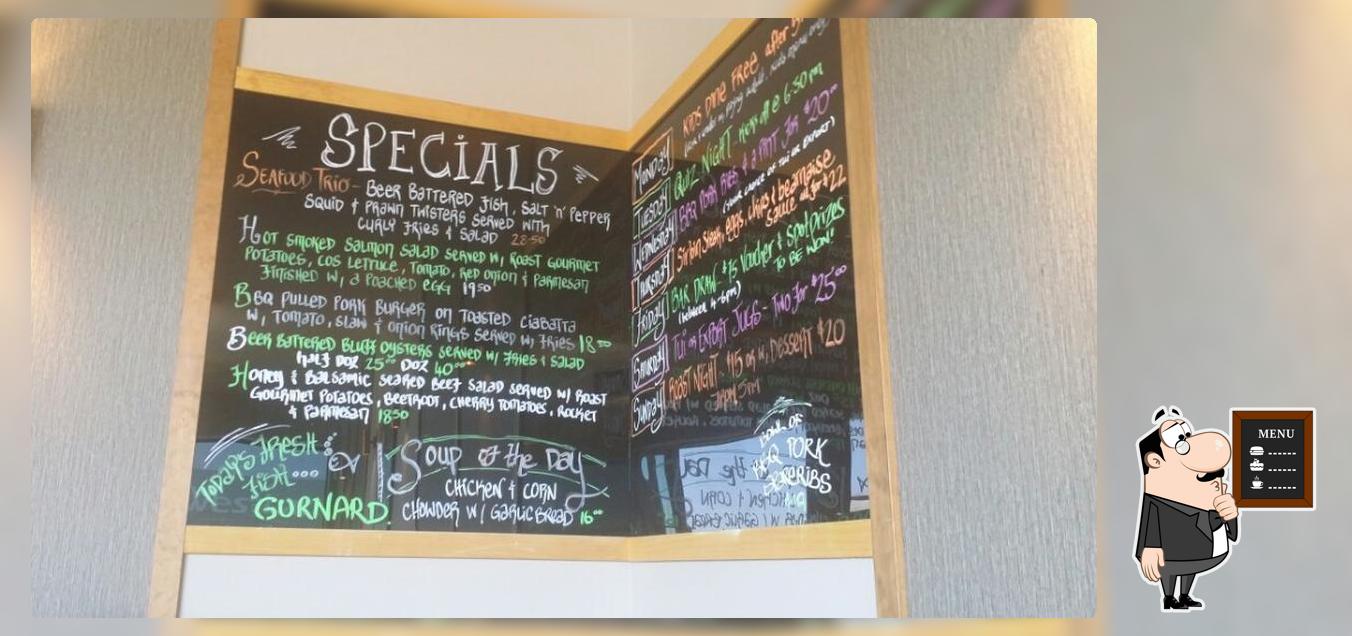 SPECIALS
SEAFOOD TRIO - BEER BATTERED FISH, SALT 'N' PEPPER
SQUID & PRAWN TWISTERS SERVED WITH
CURLY FRIES & SALAD 28.50
HOT SMOKED SALMON SALAD SERVED W/ ROAST GOURMET
POTATOES, COS LETTUCE, TOMATO, RED ONION & PARMESAN
FINISHED W/ A POACHED EGG 19.50
BBQ PULLED PORK BURGER ON TOASTED CIABATTA
W/ TOMATO, SLAW & ONION RINGS SERVED W/ FRIES 18.50
BEER BATTERED BLUFF OYSTERS SERVED W/ FRIES & SALAD
HALF DOZ 25.00 DOZ 40.00
HONEY & BALSAMIC SEARED BEEF SALAD SERVED W/ ROAST
GOURMET POTATOES, BEETROOT, CHERRY TOMATOES, ROCKET
& PARMESAN 18.50
TODAY'S FRESH
FISH...
GURNARD
SOUP of the DAY
CHICKEN & CORN
CHOWDER W/ GARLIC BREAD 16.00
KIDS DINE FREE after
MONDAY
QUIZ NIGHT - Kicks off @ 6:30pm
TUESDAY
BBQ PORK RIBS & a PINT for $20.00
(YOUR CHOICE OF TUI OR EXPORT)
WEDNESDAY
Sirloin Steak, eggs, chips & bearnaise
sauce all for $22
THURSDAY
BAR DRAW - $75 Voucher & Spot prizes
(between 4-6pm) TO BE WON!
FRIDAY
TUI or EXPORT JUGS - TWO for $25.00
SATURDAY
ROAST NIGHT - $15 or w/ DESSERT $20
from 5pm
SUNDAY
BOWL OF
BBQ PORK
SPARERIBS
MENU